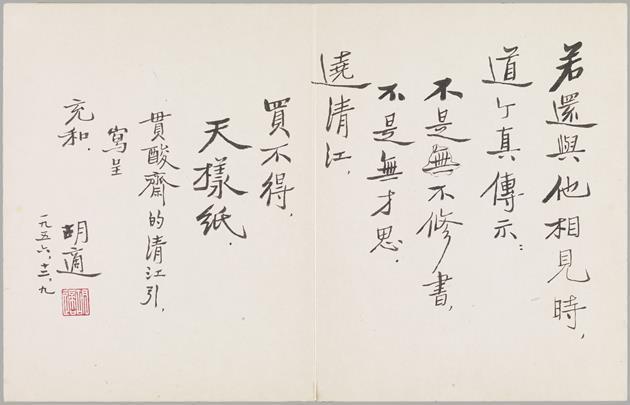 若還與他相見時,
道个真傳示:
不是不修書,
不是無才思.
遶清江,
買不得,
天樣紙.
貫酸齋的清江引,
寫呈
充和.
胡適
一九五六、十二、九